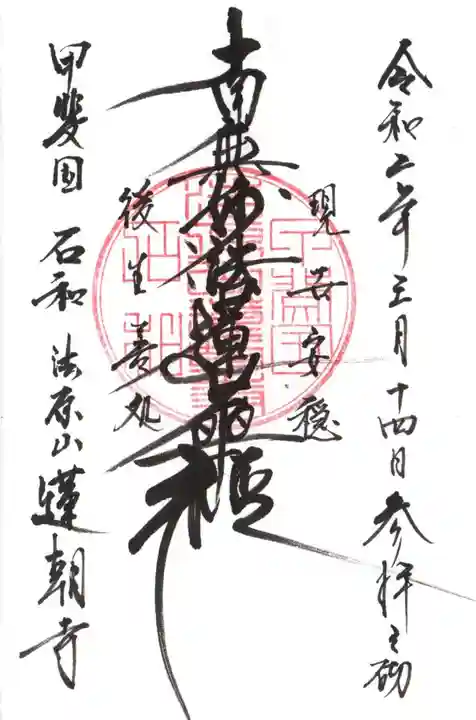 令和二年三月十四日参拝之砌
現世安穏
南無妙法蓮華経
後生善処
甲斐国 石和 法原山 蓮朝寺